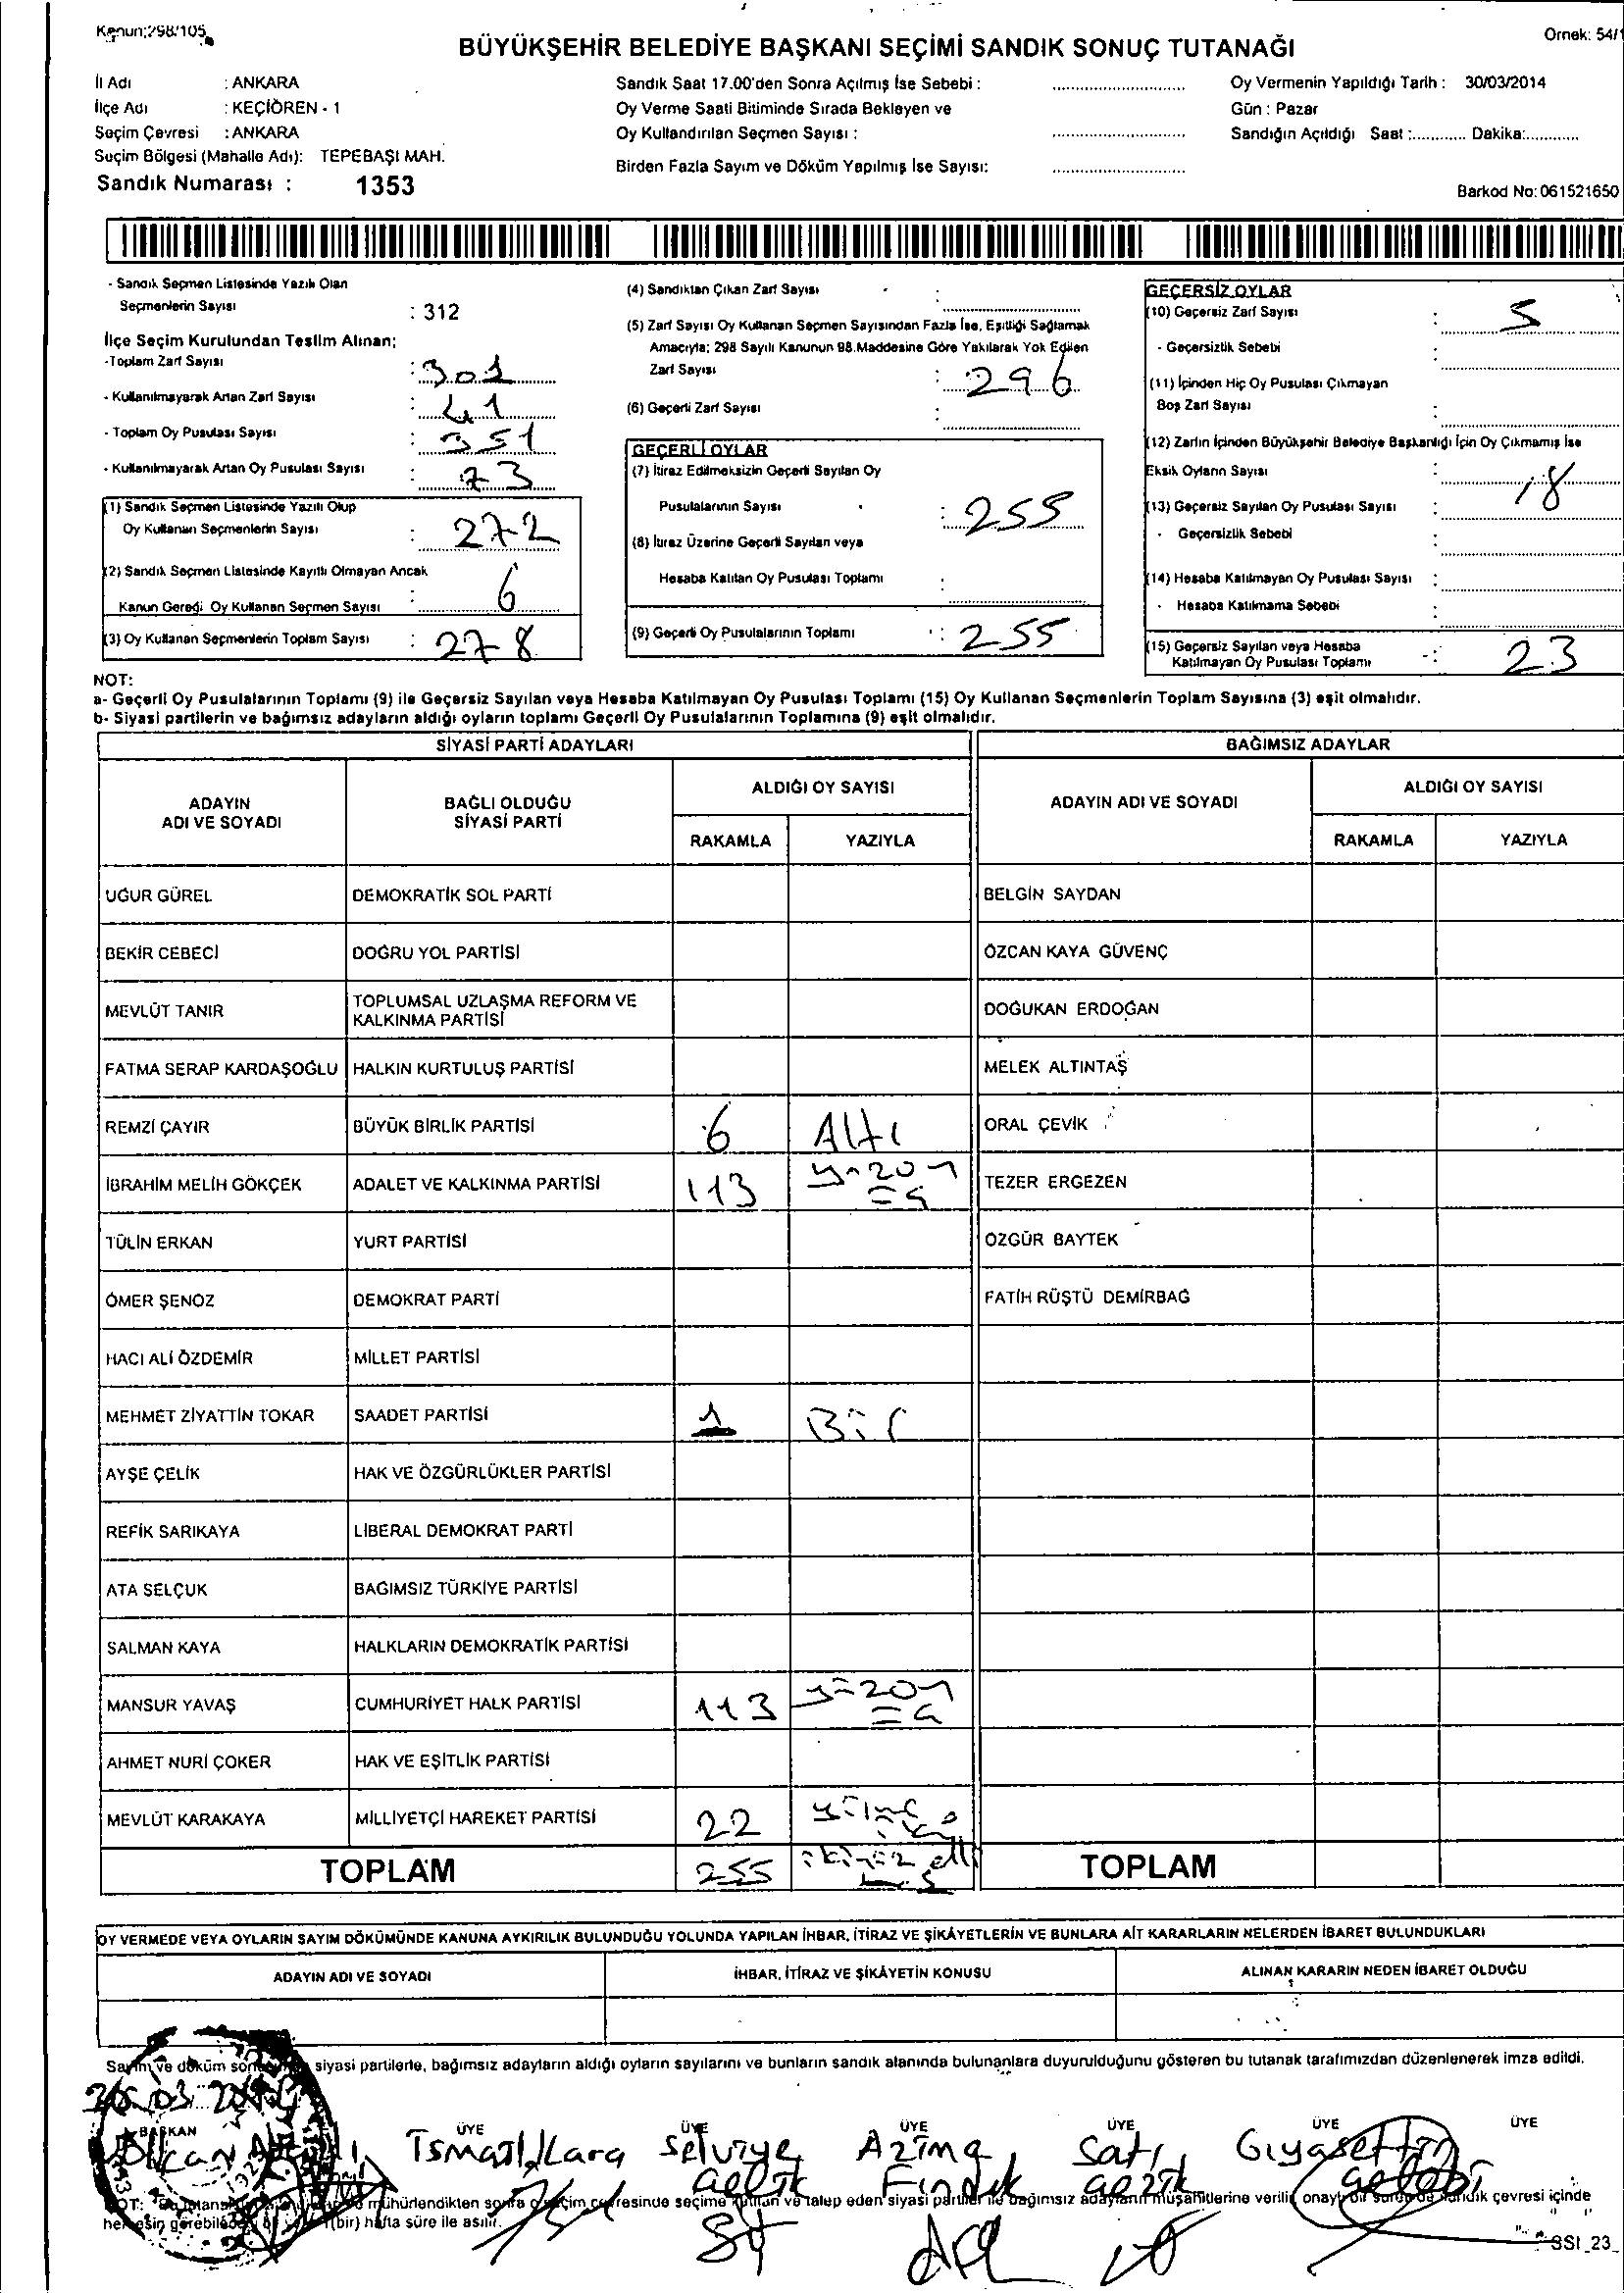 Kanun:298/105
Örnek: 54/1
BÜYÜKŞEHİR BELEDİYE BAŞKANI SEÇİMİ SANDIK SONUÇ TUTANAĞI
İl Adı : ANKARA
İlçe Adı : KEÇİÖREN - 1
Seçim Çevresi : ANKARA
Seçim Bölgesi (Mahalle Adı): TEPEBAŞI MAH.
Sandık Numarası : 1353
Sandık Saat 17.00'den Sonra Açılmış İse Sebebi :
Oy Verme Saati Bitiminde Sırada Bekleyen ve
Oy Kullandırılan Seçmen Sayısı :
Birden Fazla Sayım ve Döküm Yapılmış İse Sayısı:
Oy Vermenin Yapıldığı Tarih : 30/03/2014
Gün : Pazar
Sandığın Açıldığı Saat :............ Dakika:............
Barkod No: 061521650
- Sandık Seçmen Listesinde Yazılı Olan
Seçmenlerin Sayısı : 312
İlçe Seçim Kurulundan Teslim Alınan;
-Toplam Zarf Sayısı : 301
- Kullanılmayarak Artan Zarf Sayısı : 41
- Toplam Oy Pusulası Sayısı : 351
- Kullanılmayarak Artan Oy Pusulası Sayısı : 73
(1) Sandık Seçmen Listesinde Yazılı Olup
Oy Kullanan Seçmenlerin Sayısı : 272
(2) Sandık Seçmen Listesinde Kayıtlı Olmayan Ancak
Kanun Gereği Oy Kullanan Seçmen Sayısı : 6
(3) Oy Kullanan Seçmenlerin Toplam Sayısı : 278
(4) Sandıktan Çıkan Zarf Sayısı :
(5) Zarf Sayısı Oy Kullanan Seçmen Sayısından Fazla İse, Eşitliği Sağlamak
Amacıyla; 298 Sayılı Kanunun 98.Maddesine Göre Yakılarak Yok Edilen
Zarf Sayısı : 296
(6) Geçerli Zarf Sayısı :
GEÇERLİ OYLAR
(7) İtiraz Edilmeksizin Geçerli Sayılan Oy
Pusulalarının Sayısı : 255
(8) İtiraz Üzerine Geçerli Sayılan veya
Hesaba Katılan Oy Pusulası Toplamı :
(9) Geçerli Oy Pusulalarının Toplamı : 255
GEÇERSİZ OYLAR
(10) Geçersiz Zarf Sayısı : 5
- Geçersizlik Sebebi :
(11) İçinden Hiç Oy Pusulası Çıkmayan
Boş Zarf Sayısı :
(12) Zarfın İçinden Büyükşehir Belediye Başkanlığı İçin Oy Çıkmamış İse
Eksik Oyların Sayısı :
(13) Geçersiz Sayılan Oy Pusulası Sayısı : 18
- Geçersizlik Sebebi :
(14) Hesaba Katılmayan Oy Pusulası Sayısı :
- Hesaba Katılmama Sebebi :
(15) Geçersiz Sayılan veya Hesaba
Katılmayan Oy Pusulası Toplamı : 23
NOT:
a- Geçerli Oy Pusulalarının Toplamı (9) ile Geçersiz Sayılan veya Hesaba Katılmayan Oy Pusulası Toplamı (15) Oy Kullanan Seçmenlerin Toplam Sayısına (3) eşit olmalıdır.
b- Siyasi partilerin ve bağımsız adayların aldığı oyların toplamı Geçerli Oy Pusulalarının Toplamına (9) eşit olmalıdır.
SİYASİ PARTİ ADAYLARI BAĞIMSIZ ADAYLAR
ADAYIN ADI VE SOYADI BAĞLI OLDUĞU SİYASİ PARTİ ALDIĞI OY SAYISI ADAYIN ADI VE SOYADI ALDIĞI OY SAYISI
RAKAMLA YAZIYLA RAKAMLA YAZIYLA
UĞUR GÜREL DEMOKRATİK SOL PARTİ BELGİN SAYDAN
BEKİR CEBECİ DOĞRU YOL PARTİSİ ÖZCAN KAYA GÜVENÇ
MEVLÜT TANIR TOPLUMSAL UZLAŞMA REFORM VE KALKINMA PARTİSİ DOĞUKAN ERDOĞAN
FATMA SERAP KARDAŞOĞLU HALKIN KURTULUŞ PARTİSİ MELEK ALTINTAŞ
REMZİ ÇAYIR BÜYÜK BİRLİK PARTİSİ 6 Altı ORAL ÇEVİK
İBRAHİM MELİH GÖKÇEK ADALET VE KALKINMA PARTİSİ 113 yüzon üç TEZER ERGEZEN
TÜLİN ERKAN YURT PARTİSİ ÖZGÜR BAYTEK
ÖMER ŞENÖZ DEMOKRAT PARTİ FATİH RÜŞTÜ DEMİRBAĞ
HACI ALİ ÖZDEMİR MİLLET PARTİSİ
MEHMET ZİYATTİN TOKAR SAADET PARTİSİ 1 Bir
AYŞE ÇELİK HAK VE ÖZGÜRLÜKLER PARTİSİ
REFİK SARIKAYA LİBERAL DEMOKRAT PARTİ
ATA SELÇUK BAĞIMSIZ TÜRKİYE PARTİSİ
SALMAN KAYA HALKLARIN DEMOKRATİK PARTİSİ
MANSUR YAVAŞ CUMHURİYET HALK PARTİSİ 113 yüzon üç
AHMET NURİ ÇOKER HAK VE EŞİTLİK PARTİSİ
MEVLÜT KARAKAYA MİLLİYETÇİ HAREKET PARTİSİ 22
TOPLAM 255 ikiyüz elli beş TOPLAM
OY VERMEDE VEYA OYLARIN SAYIM DÖKÜMÜNDE KANUNA AYKIRILIK BULUNDUĞU YOLUNDA YAPILAN İHBAR, İTİRAZ VE ŞİKÂYETLERİN VE BUNLARA AİT KARARLARIN NELERDEN İBARET BULUNDUKLARI
ADAYIN ADI VE SOYADI İHBAR, İTİRAZ VE ŞİKÂYETİN KONUSU ALINAN KARARIN NEDEN İBARET OLDUĞU
Sayım ve döküm siyasi partilerle, bağımsız adayların aldığı oyların sayılarını ve bunların sandık alanında bulunanlara duyurulduğunu gösteren bu tutanak tarafımızdan düzenlenerek imza edildi.
BAŞKAN ÜYE ÜYE ÜYE ÜYE ÜYE ÜYE
İsmail Kara Selviye Çelik Azime Fındık Satı Gıyasettin Çelebi
NOT: mühürlendikten sonra çevresinde seçime katılan ve talep eden siyasi partiler ile bağımsız adayların müşahitlerine verilir, sandık çevresi içinde
(bir) hafta süre ile asılır.
SSI_23_